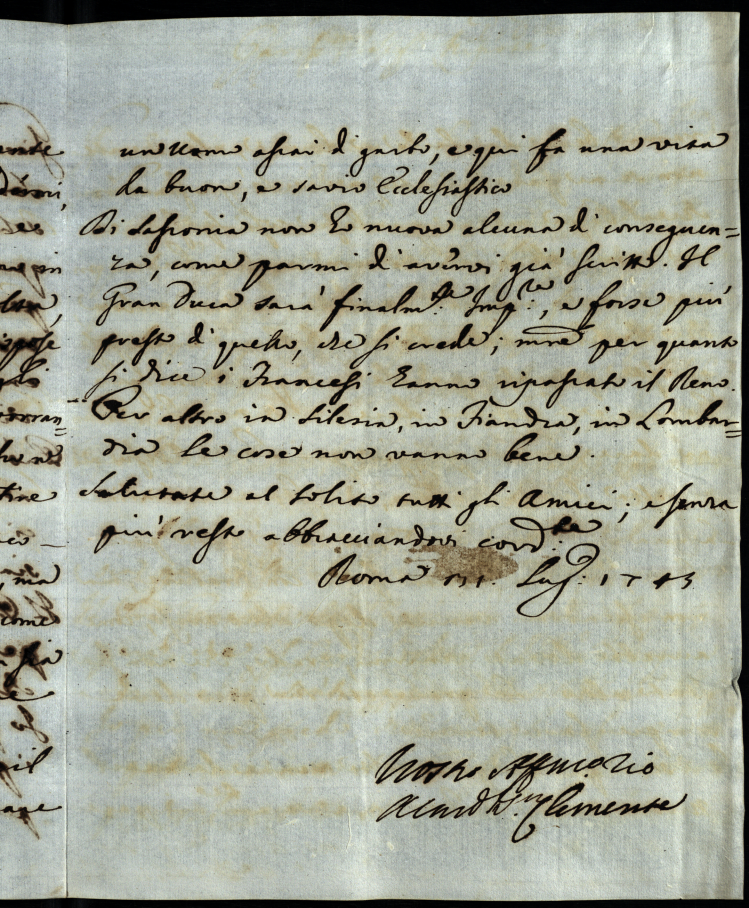 un Uomo assai di garbo, e qui fa una vita
da buon, e savio Ecclesiastico
Di Sassonia non ho nuova alcuna di conseguen=
za, come parmi di avervi già scritto. Il
Gran Duca sarà finalm.te Imp.re, e forse più
presto di quello, che si crede; mre per quanto
si dice i Francesi hanno ripassato il Reno.
Per altro in Silesia, in Fiandra, in Lombar=
dia le cose non vanno bene.
Salutate al solito tutti gli Amici; e senza
più resto abbracciandovi cord.te
Roma 31. Lug. 1745
Vostro Affmo Zio
Clemente